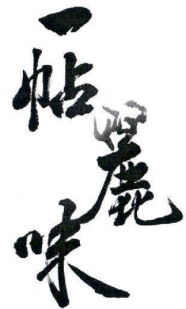 一帖麗味